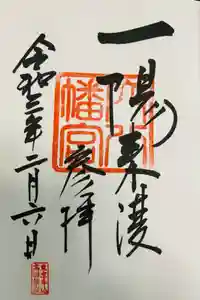 一陽来復
参拝
令和三年二月六日